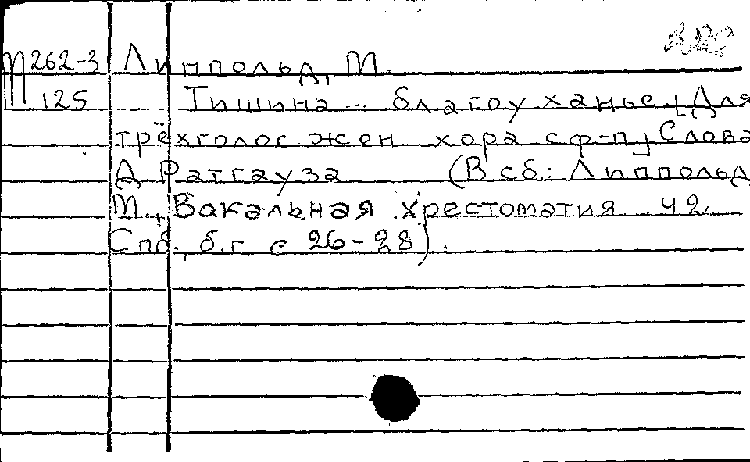 М262-3 Липпольд, М.
125 Тишина... благоуханье. [Для
трёхголос жен хора с ф-п] Слова
Д Ратгауза (В сб.: Липпольд
М., Вокальная хрестоматия. ч 2.
Спб, б.г с 26-28).